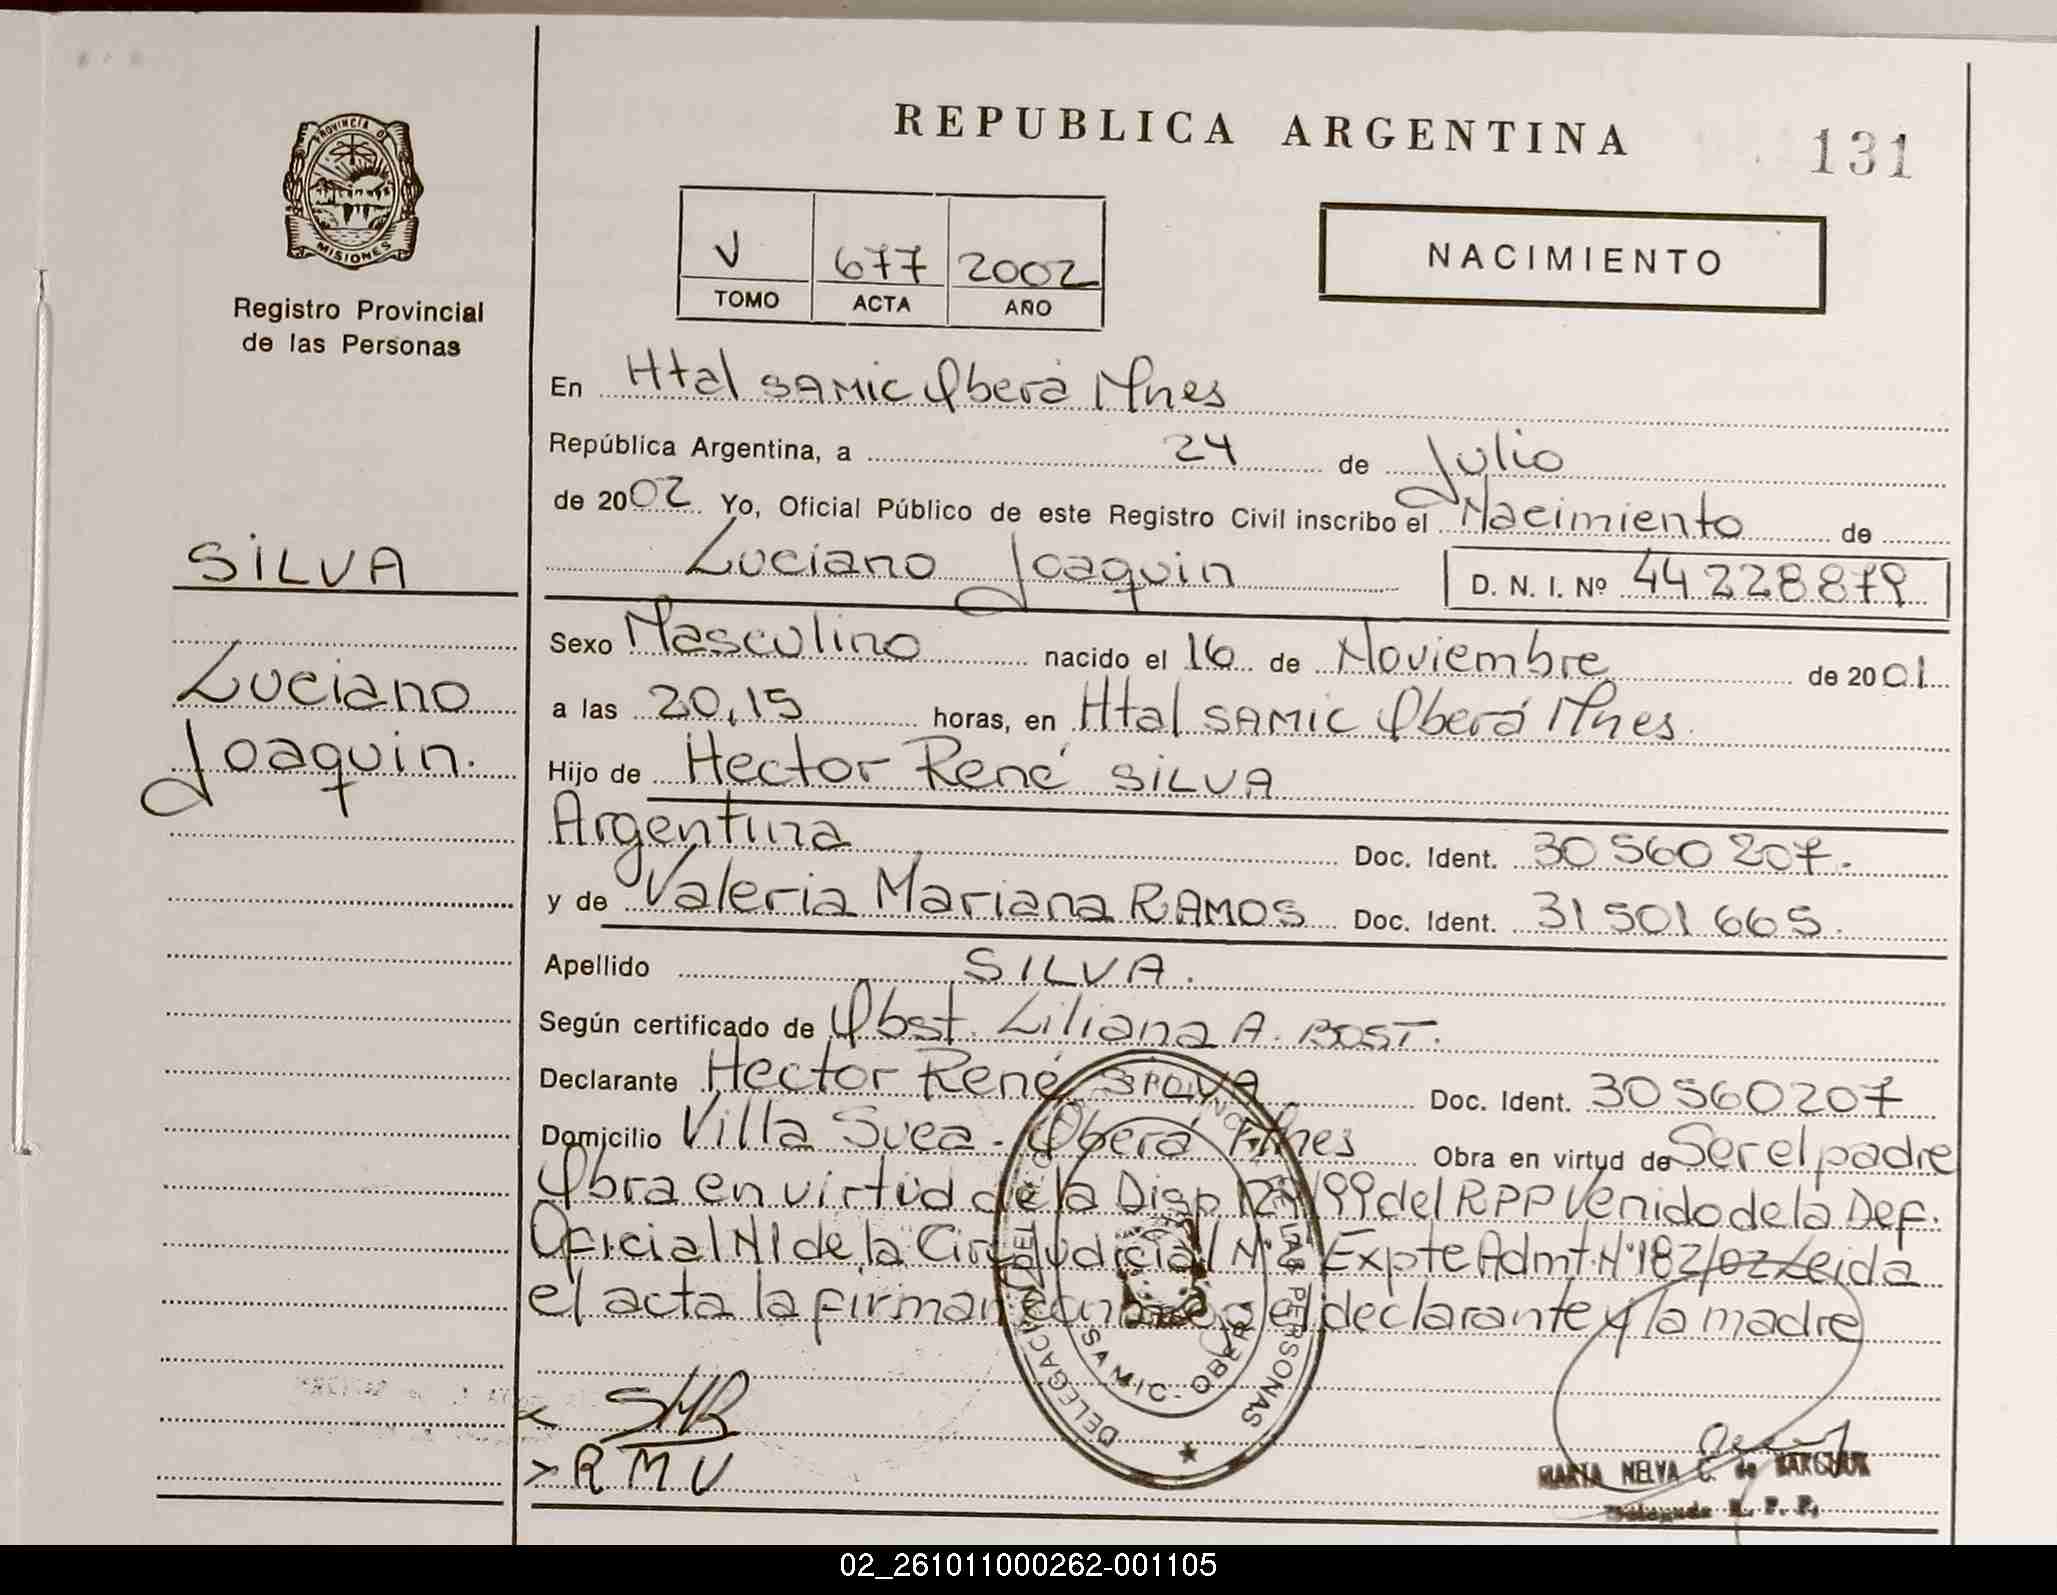 REPUBLICA ARGENTINA
131
PROVINCIA DE
MISIONES
Registro Provincial
de las Personas
V 677 2002
TOMO ACTA AÑO
NACIMIENTO
En Htal SAMIC Oberá Mnes
República Argentina, a 24 de Julio
de 2002 Yo, Oficial Público de este Registro Civil inscribo el Nacimiento de
Luciano Joaquin D. N. I. Nº 44 228 879
SILVA
Luciano
Joaquin.
Sexo Masculino nacido el 16 de Noviembre de 2001
a las 20,15 horas, en Htal SAMIC Oberá Mnes.
Hijo de Hector René SILVA
Argentina Doc. Ident. 30 560 207.
y de Valeria Mariana RAMOS Doc. Ident. 31 501 665.
Apellido SILVA.
Según certificado de Obst. Liliana A. BOST.
Declarante Hector René SILVA Doc. Ident. 30560207
Domicilio Villa Svea - Oberá Mnes Obra en virtud de Ser el padre
Obra en virtud de la Disp /99 del RPP Venido de la Def.
Oficial N1 de la Circ Judicial Nº2 Expte Admt. Nº182/02 Leida
el acta la firman el declarante y la madre
DELEGACION PERSONAS
SAMIC - OBERA
SHR
RMV
MARTA NELVA C. de
Delegada R. P. P.
02_261011000262-001105